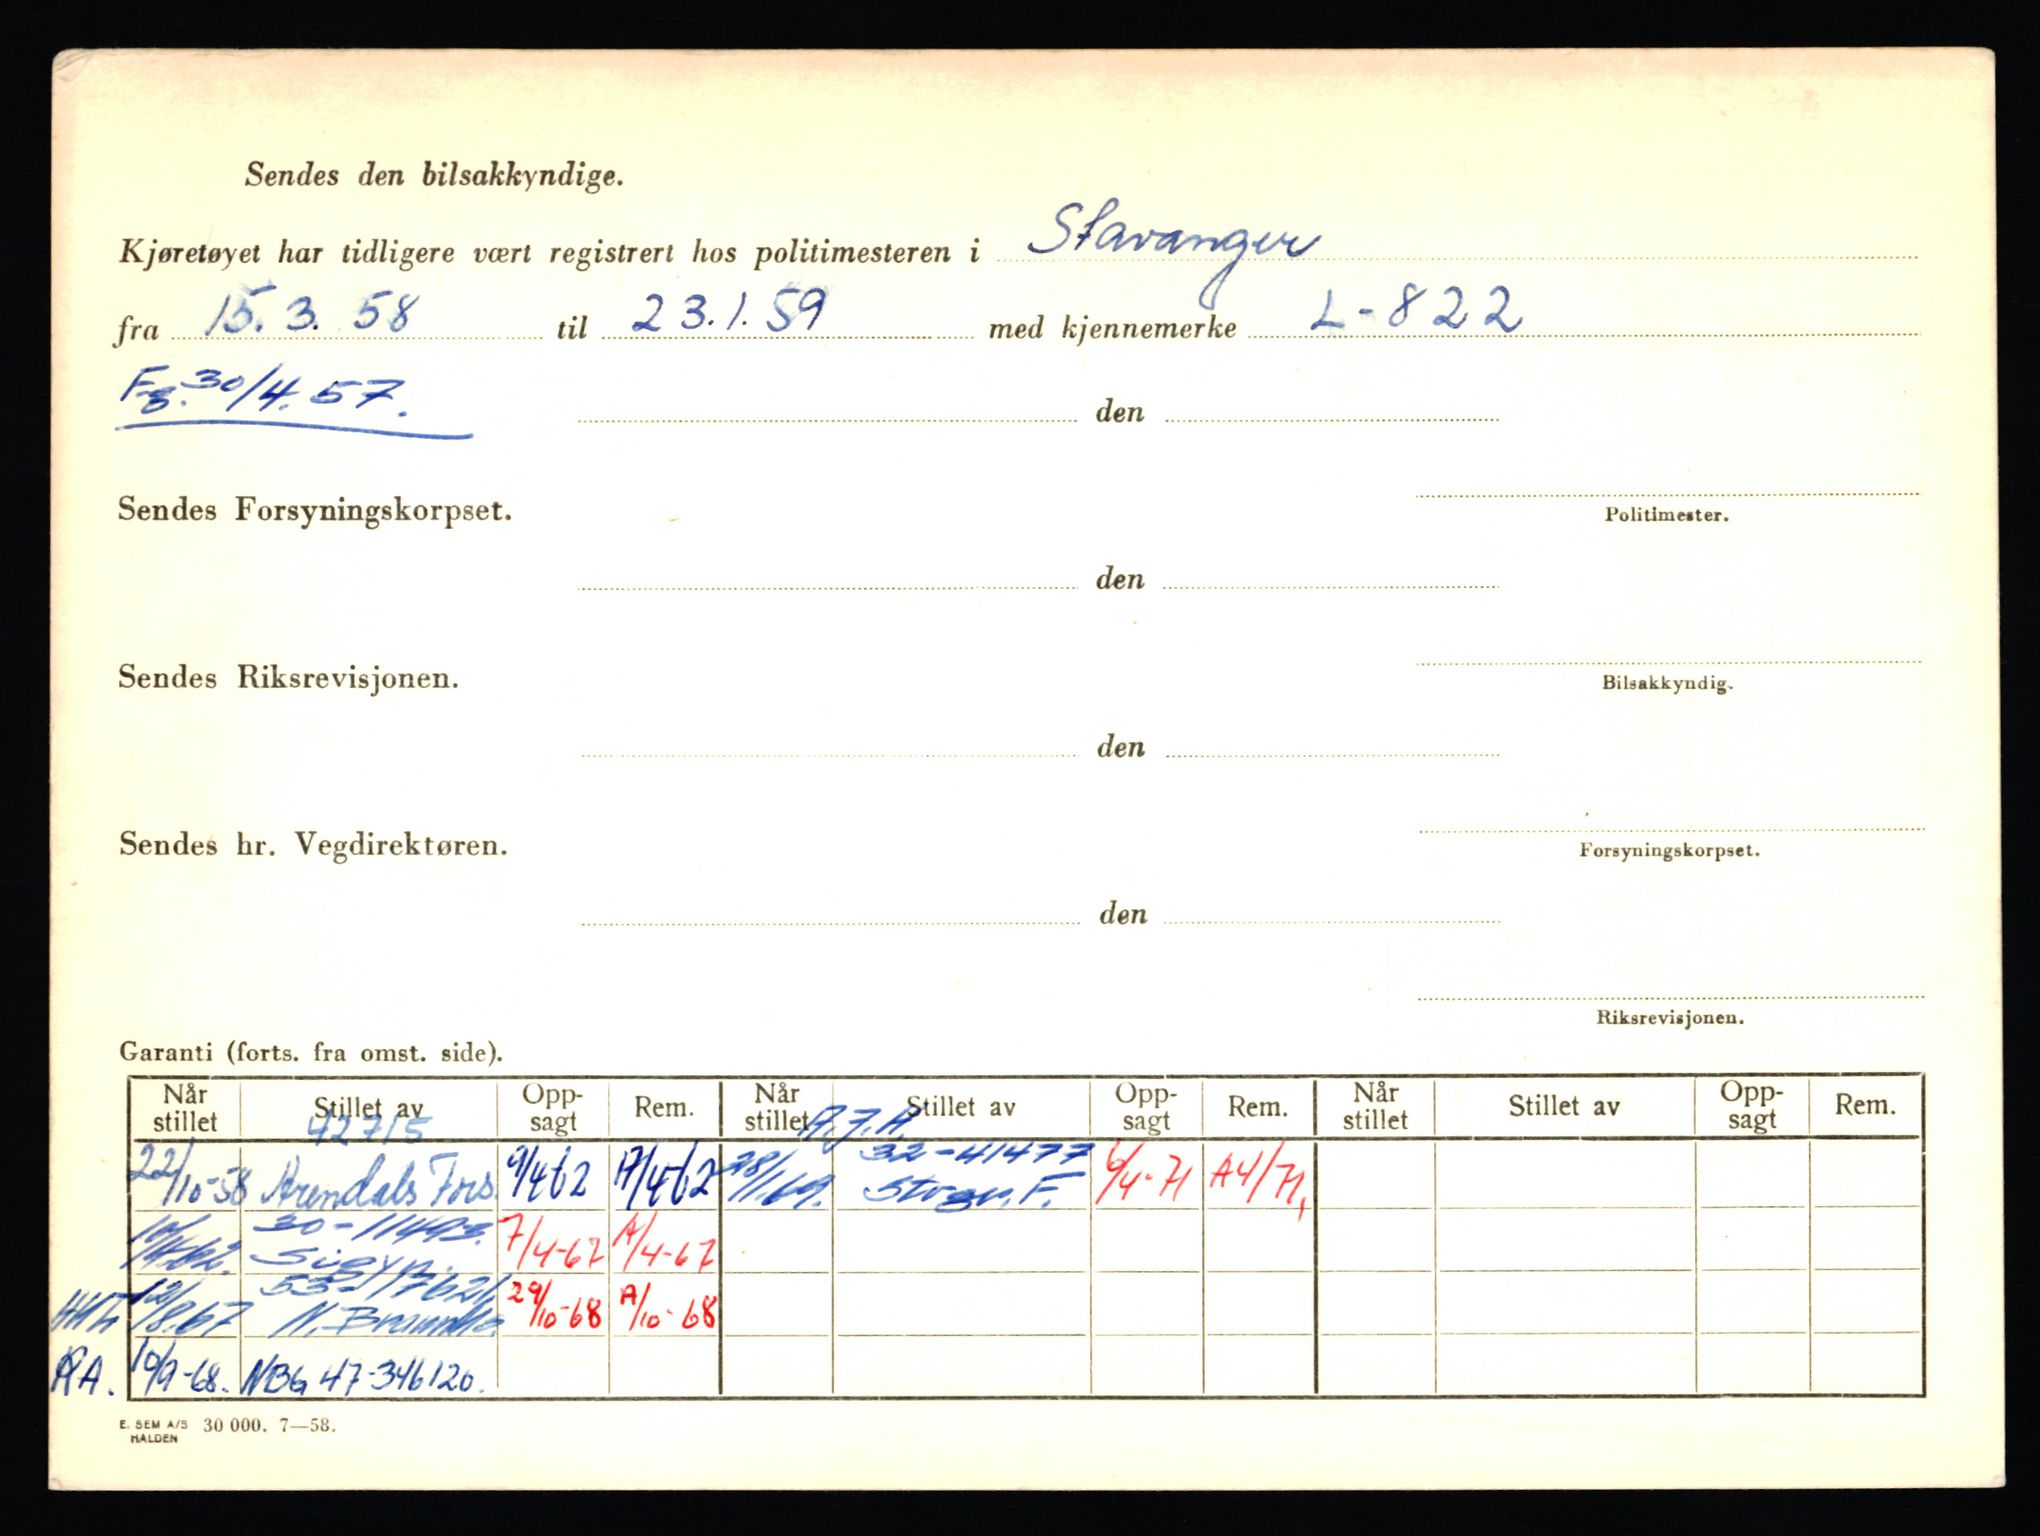 Sendes den bilsakkyndige.
Kjøretøyet har tidligere vært registrert hos politimesteren i Stavanger
fra 15.3.58 til 23.1.59 med kjennemerke L-822
Fg. 30/4.57.
den
Sendes Forsyningskorpset.
Politimester.
den
Sendes Riksrevisjonen.
Bilsakkyndig.
den
Sendes hr. Vegdirektøren.
Forsyningskorpset.
den
Riksrevisjonen.
Garanti (forts. fra omst. side).
Når stillet Stillet av Opp-sagt Rem. Når stillet Stillet av Opp-sagt Rem. Når stillet Stillet av Opp-sagt Rem.
42715 R.J.A.
22/10-58 Arendals Fors. 9/4 62 A/4 62 28/1.69. 32-41477 Stvgr. F. 6/4-71 A4/71,
30-11493. Sigyn. 7/4-67 A/4-67
12/8.67 N. 29/10-68 A/10-68
RA. 10/9-68. NBG 47-346120.
E. SEM A/S HALDEN 30 000. 7—58.